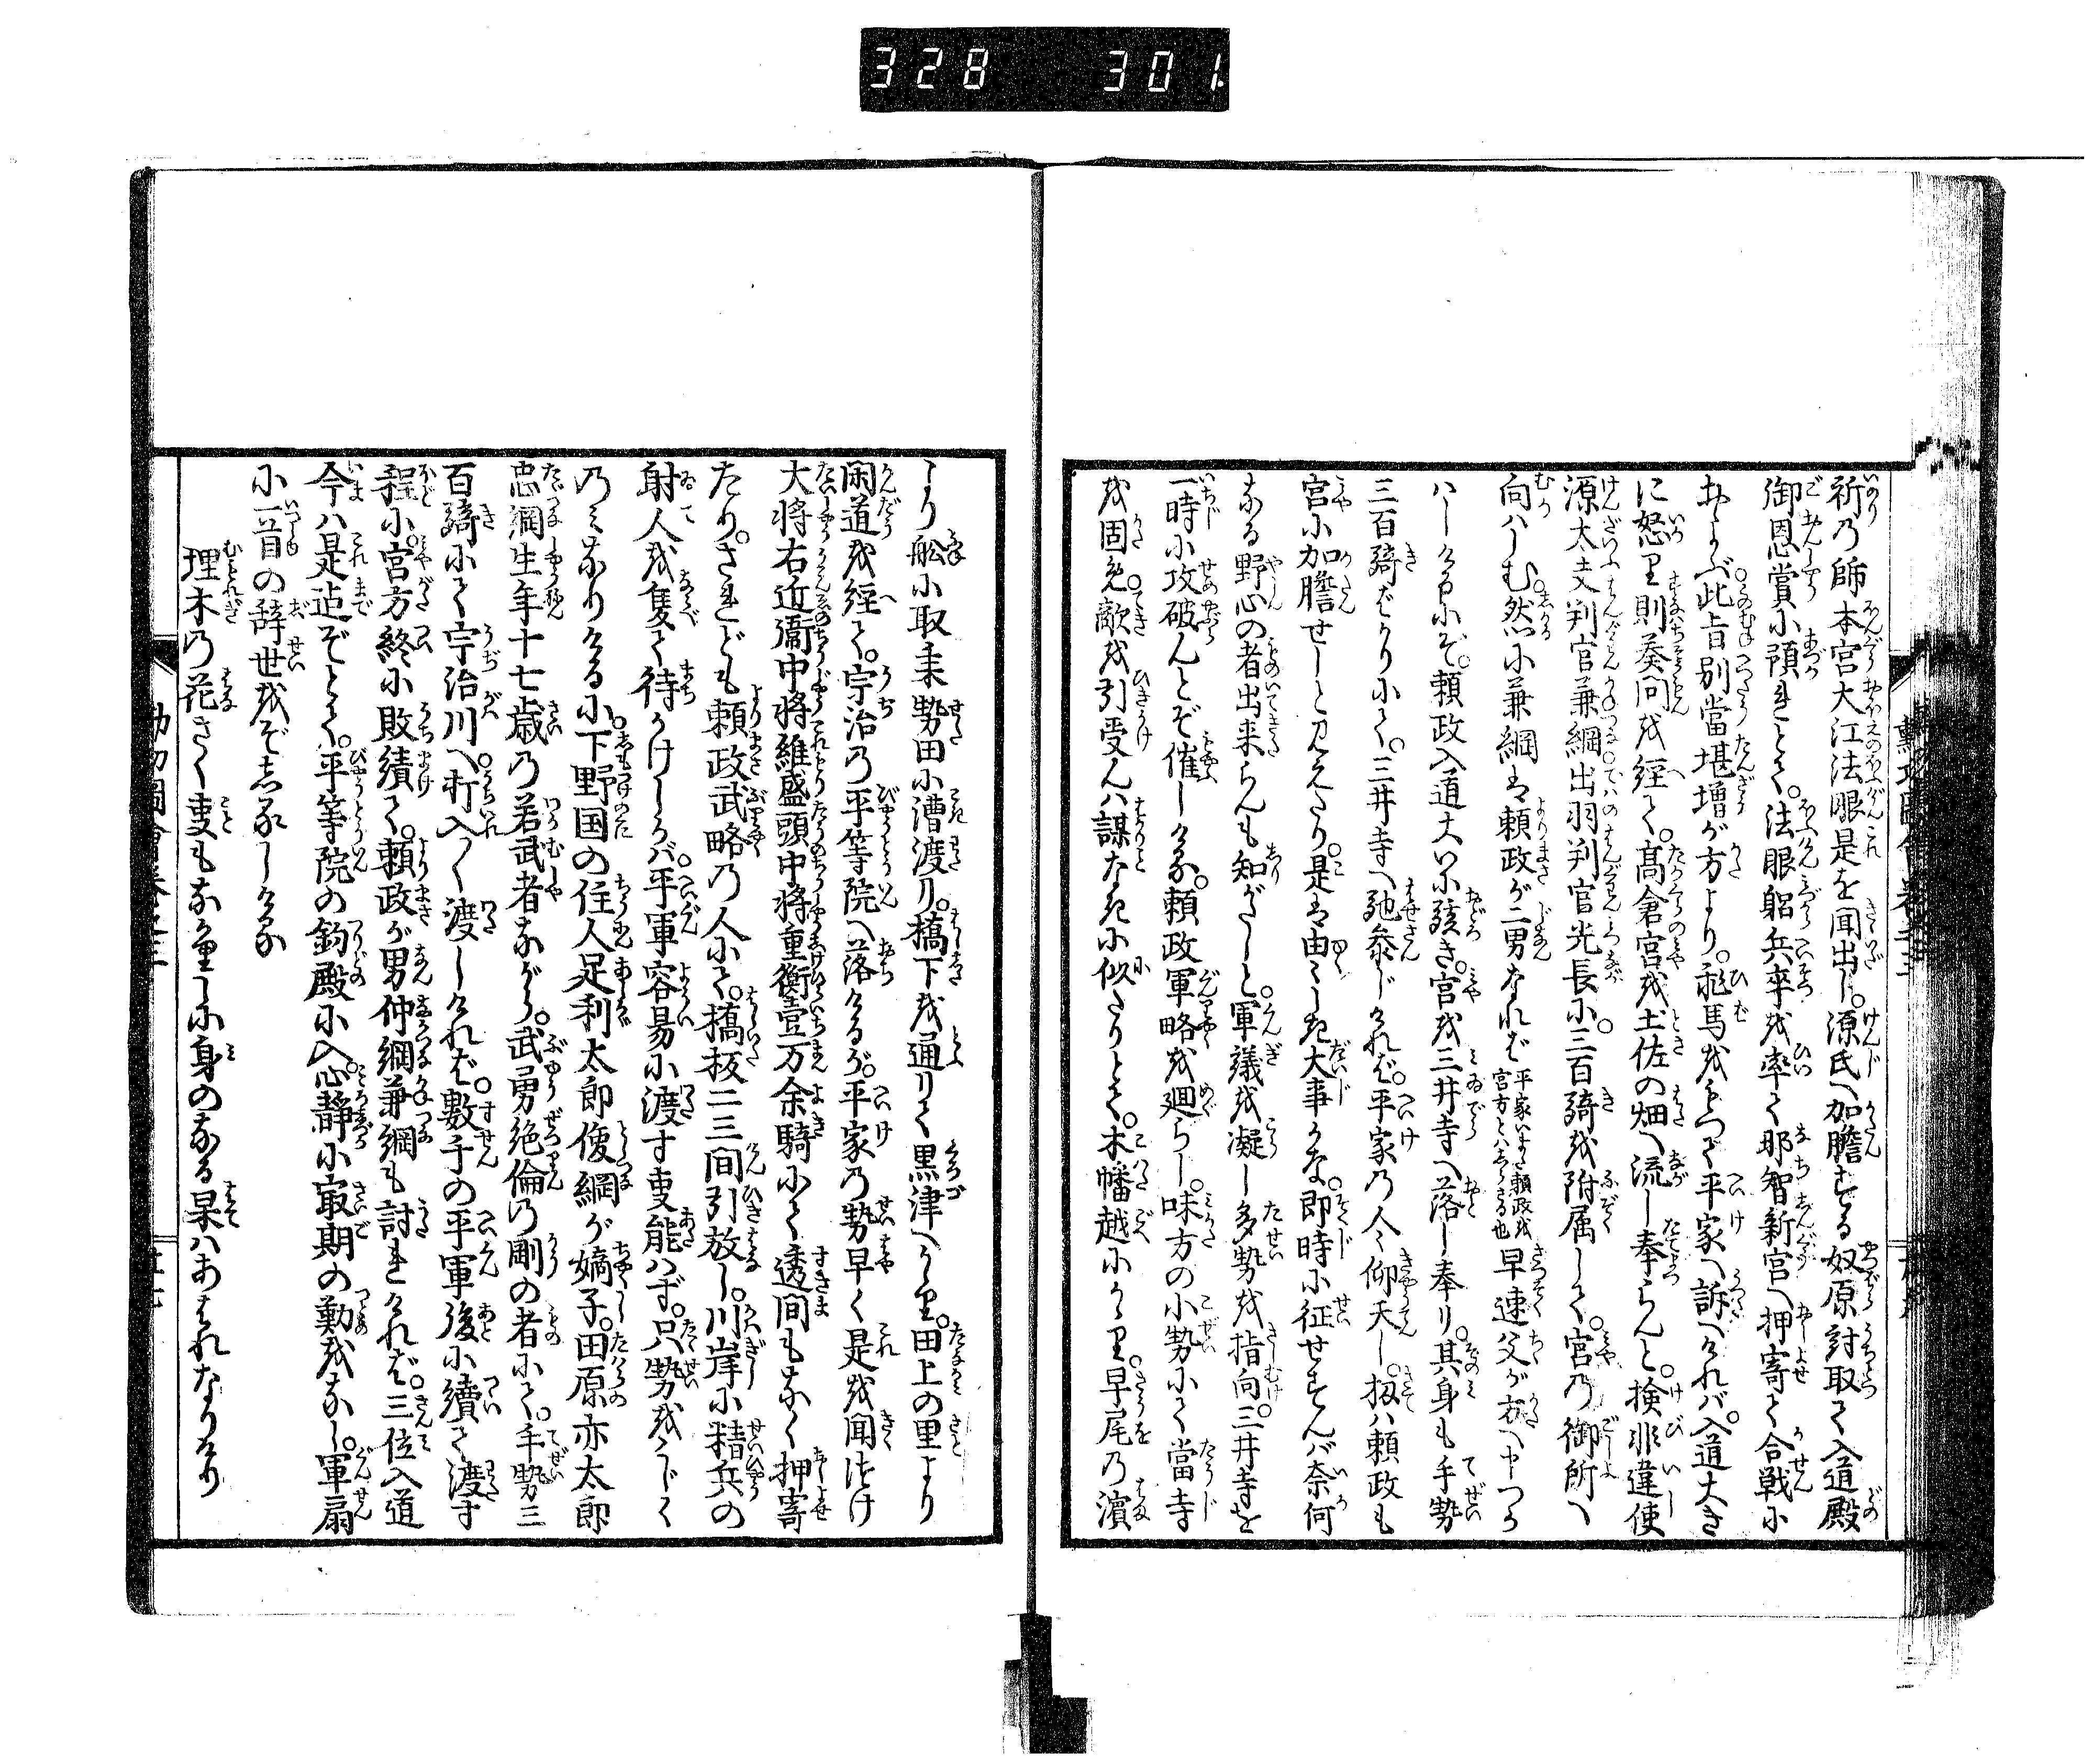 328 301
祈の師本宮大江法眼是を聞出し。源氏へ加膽する奴原討取て入道殿
御恩賞に預れとて。法眼躬兵卒を率て那智新宮へ押寄て合戦に
およぶ此旨別當堪増が方より。飛馬をもつて平家へ訴へければ入道大き
に怒り則奏問を経て。髙倉宮を土佐の畑へ流し奉らんと。検非違使
源太夫判官兼綱出羽判官光長に。三百騎を附属して。宮の御所へ
向はしむ。然に兼綱は頼政が二男なれば平家いまだ頼政を宮方とはしらざる也早速父が方へ申つか
はしけるにぞ。頼政入道大に駭き。宮を三井寺へ落し奉り。其身も手勢
三百騎ばかりにて。三井寺へ馳参じければ。平家の人々仰天し。扨は頼政も
宮に加膽せしと見えたり。是は由々しき大事かな。即時に征せずんば奈何
なる野心の者出来らんも知がたしと。軍議を凝し多勢を指向。三井寺を
一時に攻破んとぞ催しける。頼政軍略を廻らし。味方の小勢にて當寺
を固め。敵を引受んは謀なきに似たりとて。木幡越にかゝり。早尾の濵
より舩に取乗勢田に漕渡り。橋下を通りて黒津へかゝり。田上の里より
閑道を経て。宇治の平等院へ落けるが。平家の勢早く是を聞つけ
大将右近衞中将維盛頭中将重衡壹万余騎にて透間もなく押寄
たり。されども頼政武略の人にて。橋板二三間引放し。川岸に精兵の
射人を隻て待かけしかバ。平軍容易に渡す事能はず。只勢をくじく
のみなりけるに。下野国の住人足利太郎俊綱が嫡子。田原亦太郎
忠綱生年十七歳の若武者ながら。武勇絶倫の剛の者にて。手勢三
百騎にて宇治川へ打入〱渡しければ。數千の平軍後に續て渡す
程に。宮方終に敗績て。頼政が男仲綱兼綱も討れければ。三位入道
今ハ是迠ぞとて。平等院の釣殿に入。心靜に最期の勤をなし。軍扇
に一首の辞世をぞしるしける
埋木の花さく事もなかりしに身のなる果はあはれなりけり